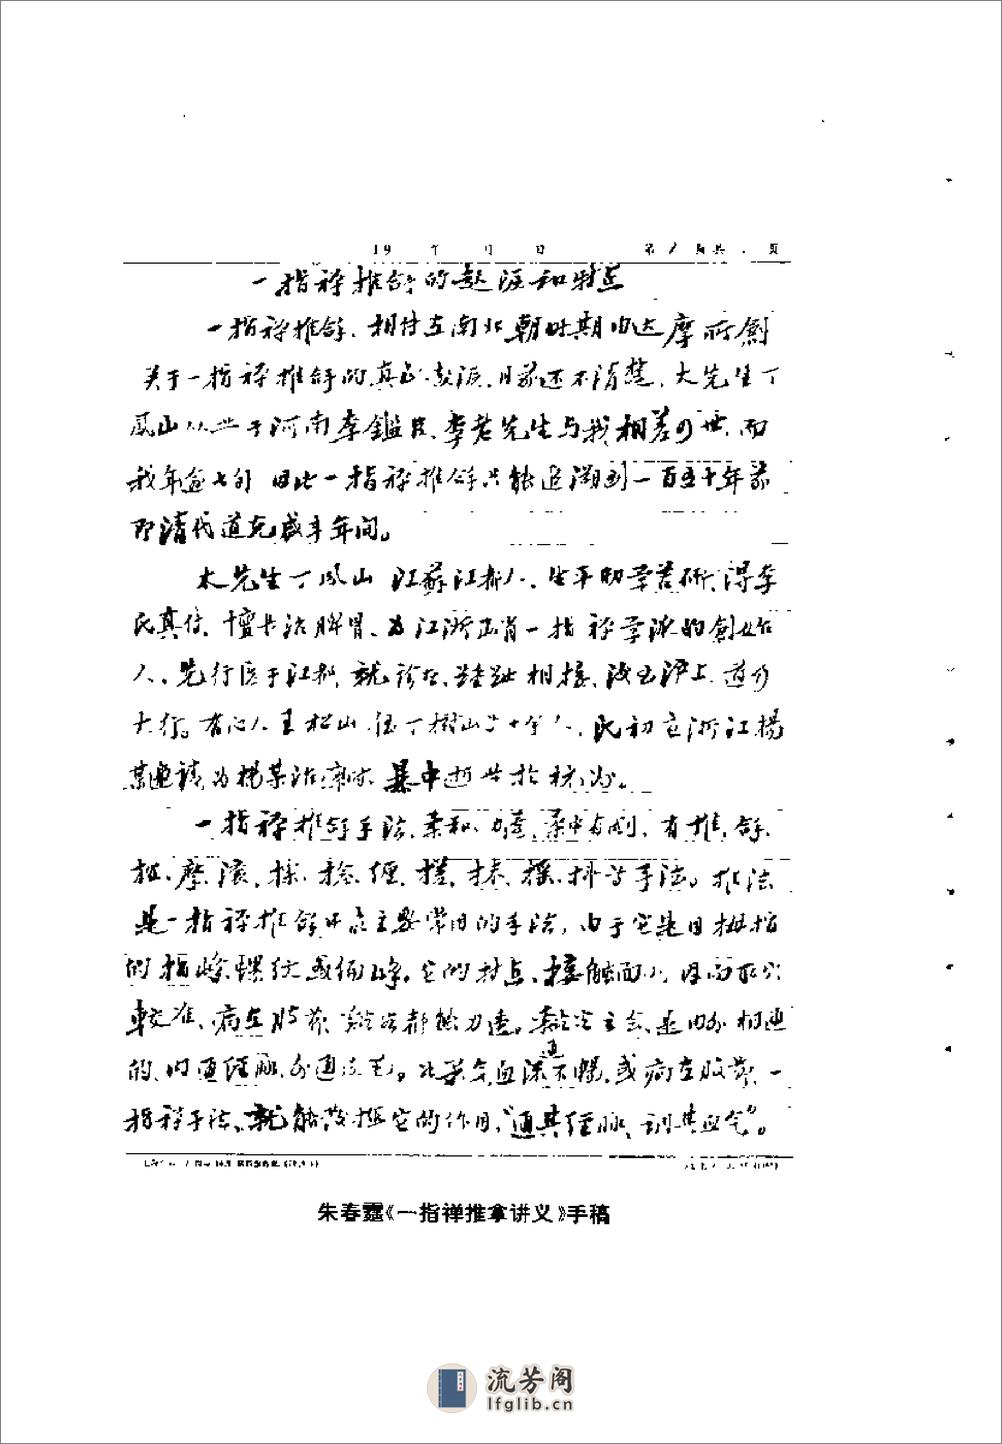 19 年 月 日 第 1 页共 页
一指禅推拿的起源和特点
一指禅推拿、相传在南北朝时期由达摩所创
关于一指禅推拿的真正起源、目前还不清楚、大先生丁
凤山从业于河南李鑑臣、李老先生与我相差 世、而
我年逾七旬 因此一指禅推拿只能追溯到一百五十年前
即清代道光咸丰年间。
太先生丁凤山 江蘇江都人、生平 学 研、得李
氏真传、擅长治脾胃、为江浙两省一指禅学派的創始
人、先行医于江都、就诊者、踵趾相接、後至沪上、道乃
大行。有门人王松山、 丁樹山 十 人、民初在浙江楊
某邀请、为楊某治 、暴中逝世於杭州。
一指禅推拿手法、柔和、力 、柔中有刚、有推、拿、
按、摩、滚、揉、捻、缠、搓、抹、搖、抖等手法。推法
是一指禅推拿中最主要常用的手法、由于它是用拇指
的指峰、螺纹或偏峰。它的特点、接触面小、因而取穴
較准、病在 、 都能力透。 是内外相通
的、内通经脉、外通 。 如若气血流通不暢、或病在肢节、一
指禅手法、就能发揮它的作用、“通其经脉、调其血气”。
朱春霆《一指禅推拿讲义》手稿
流芳阁
lfglib.cn